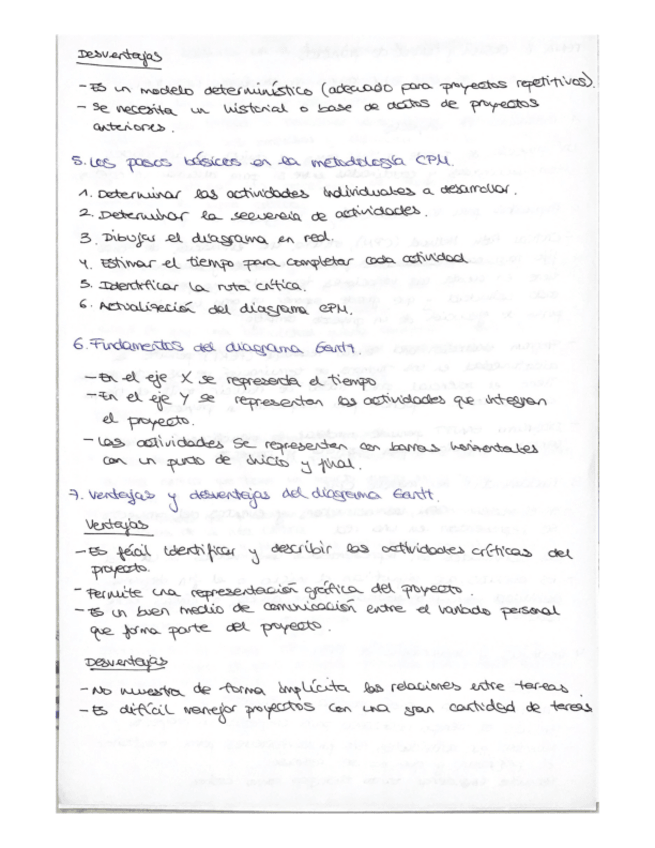 Desventajas
- Es un modelo determinístico (adecuado para proyectos repetitivos).
- Se necesita un historial o base de datos de proyectos
anteriores.
5. Los pasos básicos en la metodología CPM.
1. Determinar las actividades individuales a desarrollar.
2. Determinar la secuencia de actividades.
3. Dibujar el diagrama en red.
4. Estimar el tiempo para completar cada actividad
5. Identificar la ruta crítica.
6. Actualización del diagrama CPM.
6. Fundamentos del diagrama Gantt.
- En el eje X se representa el tiempo
- En el eje Y se representan las actividades que integran
el proyecto.
- Las actividades se representan con barras horizontales
con un punto de inicio y final.
7. Ventajas y desventajas del diagrama Gantt.
Ventajas
- Es fácil identificar y describir las actividades críticas del
proyecto.
- Permite una representación gráfica del proyecto.
- Es un buen medio de comunicación entre el variado personal
que forma parte del proyecto.
Desventajas
- No muestra de forma implícita las relaciones entre tareas.
- Es difícil manejar proyectos con una gran cantidad de tareas